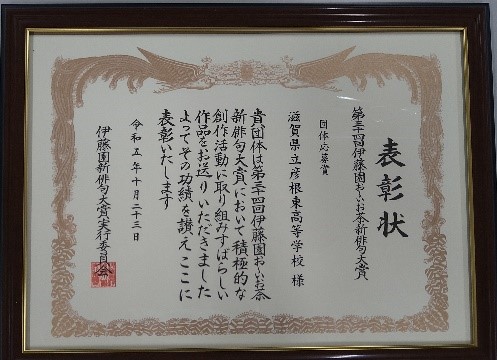 表彰状
第三十四回伊藤園お〜いお茶新俳句大賞
団体応募賞
滋賀県立彦根東高等学校 様
貴団体は第三十四回伊藤園お〜いお茶
新俳句大賞において積極的な
創作活動に取り組みすばらしい
作品をお送りいただきました
よってその功績を讃えここに
表彰いたします
令和五年十月二十三日
伊藤園新俳句大賞実行委員会